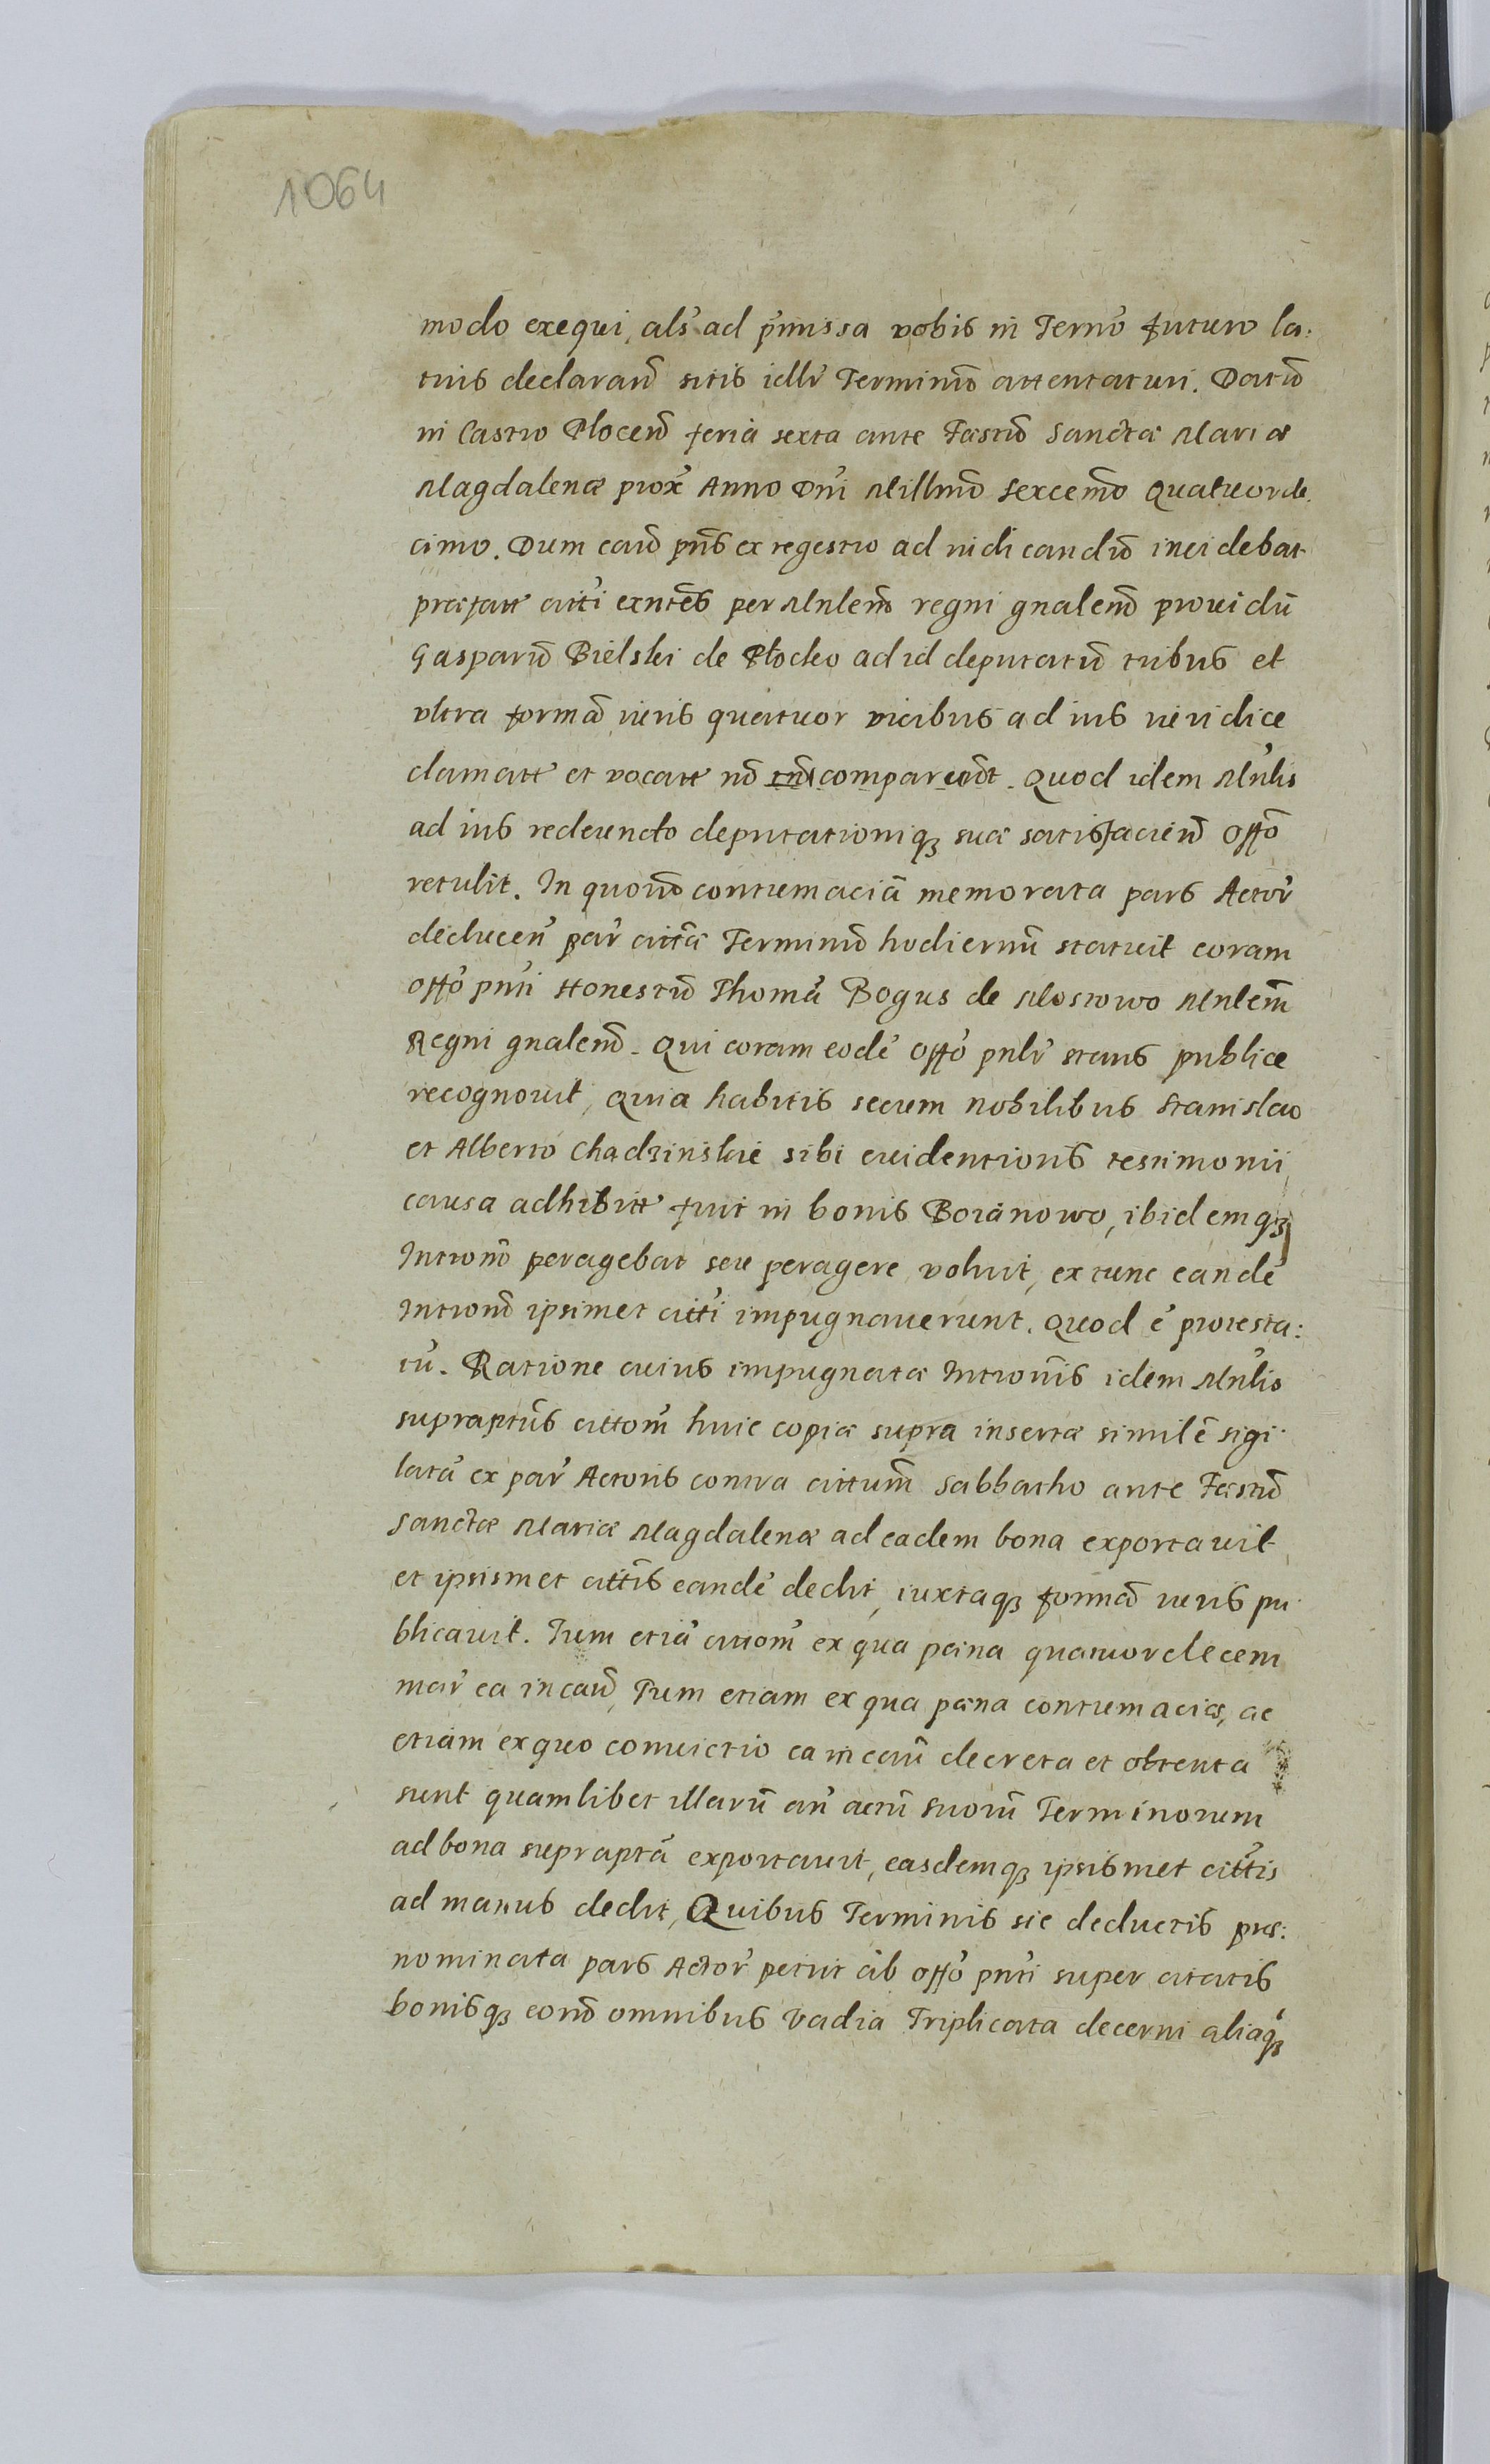 1064
modo exequi, als ad pmissa vobis in Termo futuro la:
tius declarand sitis ictlr Terminum attentaturi. Datum
in Castro Plocen feria sexta ante Festum Sanctæ Mariæ
Magdalenæ prox Anno Dni Millmo Sexcemo Quatuorde.
cimo. Dum caus pns ex regestro ad iudicandum incidebat
præfatt citti exntes per Mnlem regni gnalem prouidū
Gasparum Bielski de Płocko ad id deputatum tribus et
vltra formā iuris quatuor vicibus ad ius iuridice
clamatt et vocatt nō comparuāt. Quod idem Mnlis
ad ius redeundo deputationiq3 suæ satisfaciend Offo
retulit. In quorum contumaciā memorata pars Actor
deducen par cittā Terminum hodiernū statuit coram
offo pnti Honestum Thomā Bogus de Mostowo Mnlem
Regni gnalem. Qui coram eodē offo pnlr stans publice
recognouit, Quia habitis secum Nobilibus Stanislao
et Alberto Chadzinskie sibi euidentioris testimonii
causa adhibitt fuit in bonis Boianowo, ibidemq3
Intronō peragebat seu peragere voluit, ex tunc eandē
Intronō ipsimet citti impugnauerunt. Quod ē protesta:
tū. Ratione cuius impugnatæ Intronis idem Mnlis
supraptus cittom huic copiæ supra insertæ similē sigi
latā ex par Actoris contra cittum Sabbatho ante Festum
Sanctæ Mariæ Magdalenæ ad eadem bona exportauit,
et ipsismet cittis eandē dedit, iuxtaq3 formā iuris pu
blicauit. Tum etiā cittom ex qua pæna quatuordecem
mar ea in caus, Tum etiam ex qua pæna contumaciæ, ac
etiam ex quo conuictio ea in caus decreta et obtenta
sunt quamlibet illarū an actū suorū Terminorum
ad bona supraptā exportauit, easdemq3 ipsismet cittis
ad manus dedit, Quibus Terminis sic deductis præ:
nominata pars Actor petiit ab offo pnti super citatis
bonisq3 eorū omnibus Vadia Triplicata decerni aliaq3